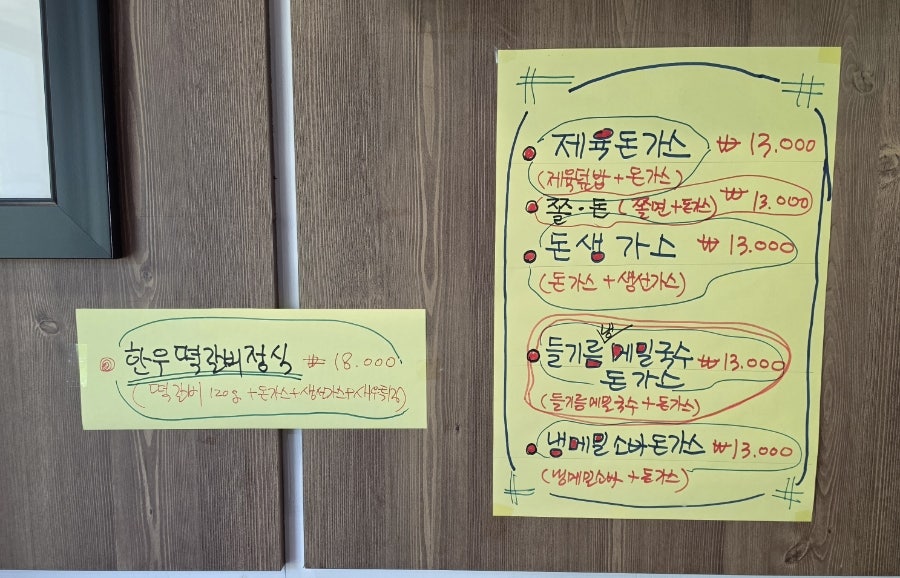 한우떡갈비정식 ₩18.000
(떡갈비 120g +돈가스+생선가스+새우튀김)
제육돈가스 ₩13.000
(제육덮밥 + 돈가스)
쫄·돈 (쫄면+돈가스) ₩13.000
돈생가스 ₩13.000
(돈가스 +생선가스)
들기름 메밀국수 ₩13.000
돈가스
(들기름메밀국수+돈가스)
냉메밀소바돈가스 ₩13.000
(냉메밀소바 +돈가스)